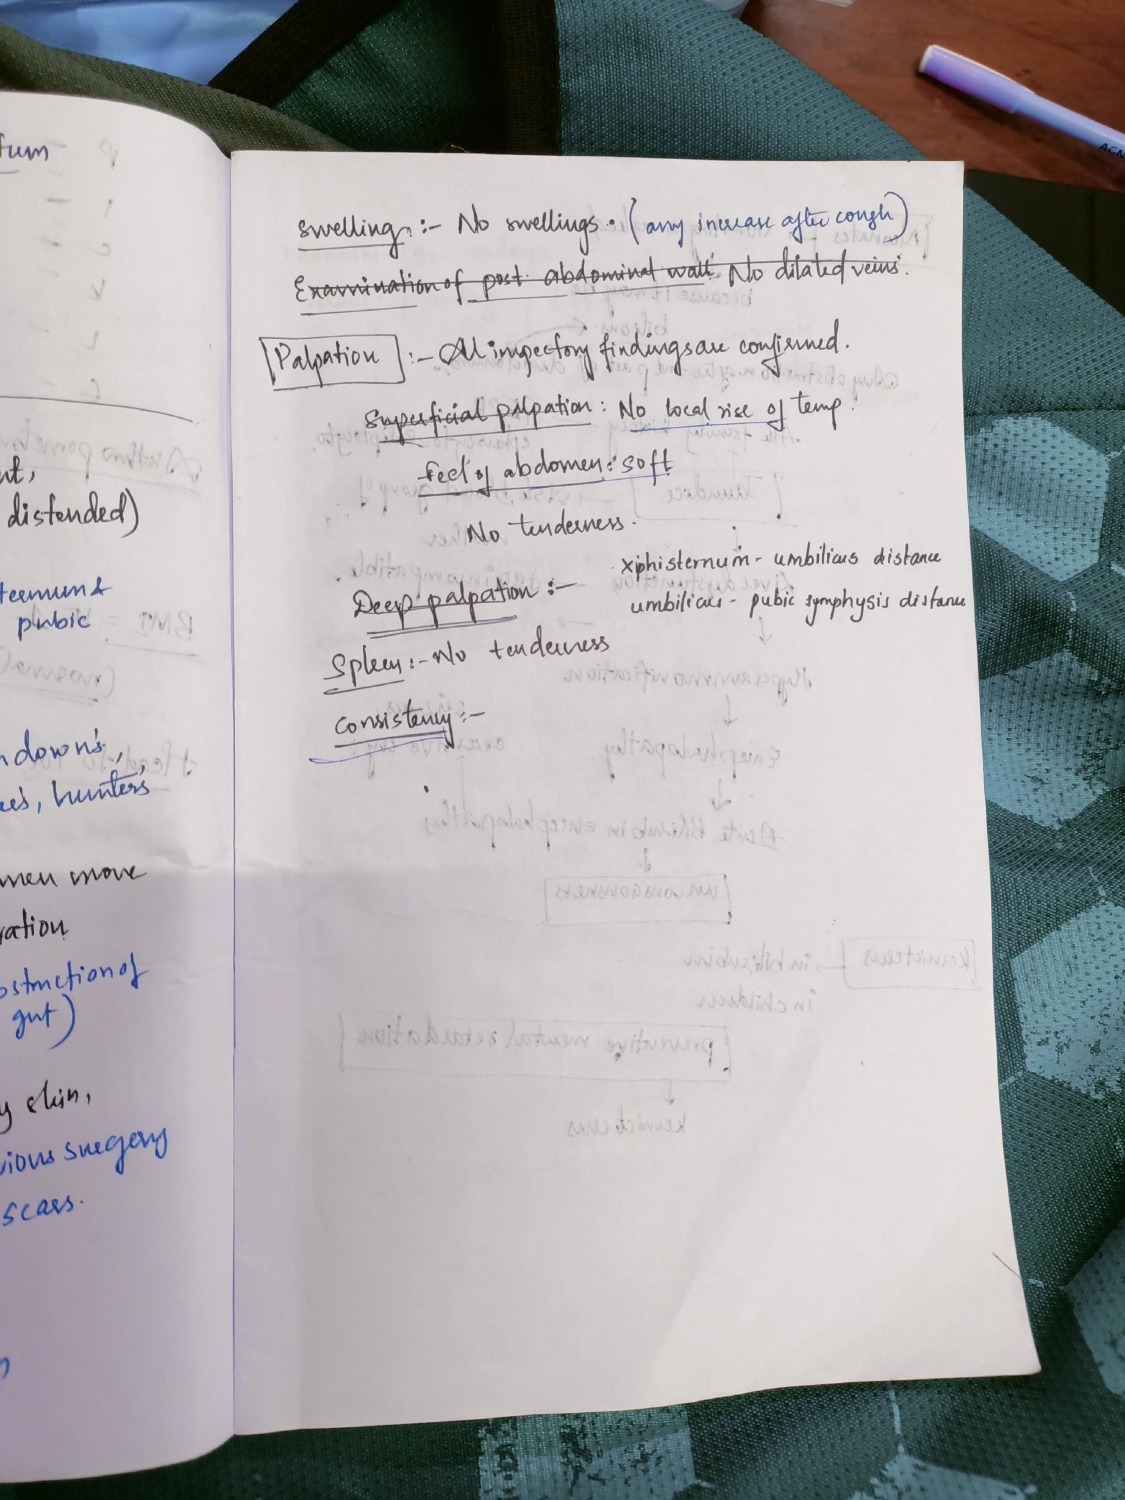 tum
nt,
distended)
ternum &
pubic
n down's,
hunters
men move
ration
obstruction of
gut)
y skin,
vious surgery
scars.
swelling :- No swellings. (any increase after cough)
Examination of post. abdominal wall No dilated veins.
Palpation :- All inspectory findings are confirmed.
Superficial palpation : No local rise of temp.
feel of abdomen : soft
No tenderness.
xiphisternum - umbilicus distance
Deep palpation :-
umbilicus - pubic symphysis distance
Spleen :- No tenderness
Consistency :-